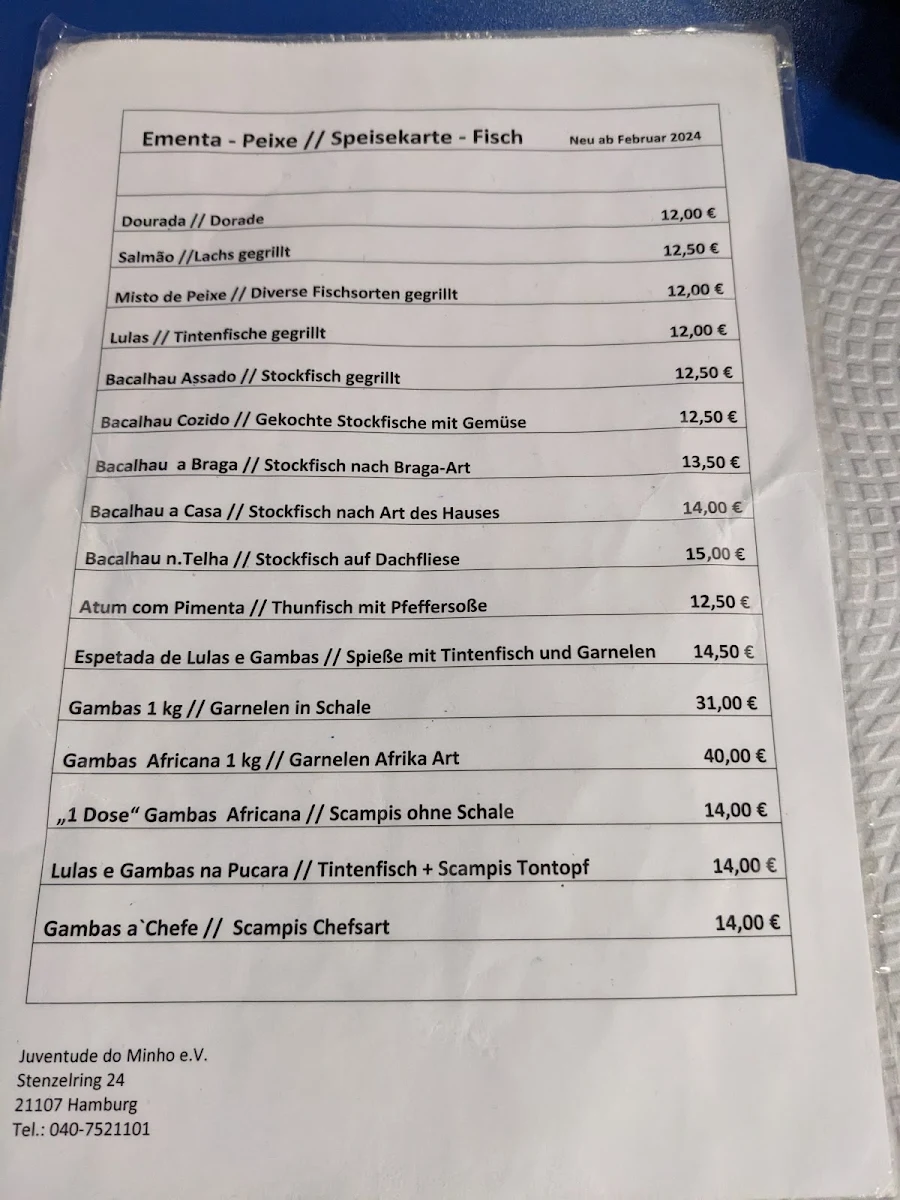 Ementa - Peixe // Speisekarte - Fisch Neu ab Februar 2024
Dourada // Dorade 12,00 €
Salmão //Lachs gegrillt 12,50 €
Misto de Peixe // Diverse Fischsorten gegrillt 12,00 €
Lulas // Tintenfische gegrillt 12,00 €
Bacalhau Assado // Stockfisch gegrillt 12,50 €
Bacalhau Cozido // Gekochte Stockfische mit Gemüse 12,50 €
Bacalhau a Braga // Stockfisch nach Braga-Art 13,50 €
Bacalhau a Casa // Stockfisch nach Art des Hauses 14,00 €
Bacalhau n.Telha // Stockfisch auf Dachfliese 15,00 €
Atum com Pimenta // Thunfisch mit Pfeffersoße 12,50 €
Espetada de Lulas e Gambas // Spieße mit Tintenfisch und Garnelen 14,50 €
Gambas 1 kg // Garnelen in Schale 31,00 €
Gambas Africana 1 kg // Garnelen Afrika Art 40,00 €
„1 Dose“ Gambas Africana // Scampis ohne Schale 14,00 €
Lulas e Gambas na Pucara // Tintenfisch + Scampis Tontopf 14,00 €
Gambas a`Chefe // Scampis Chefsart 14,00 €
Juventude do Minho e.V.
Stenzelring 24
21107 Hamburg
Tel.: 040-7521101